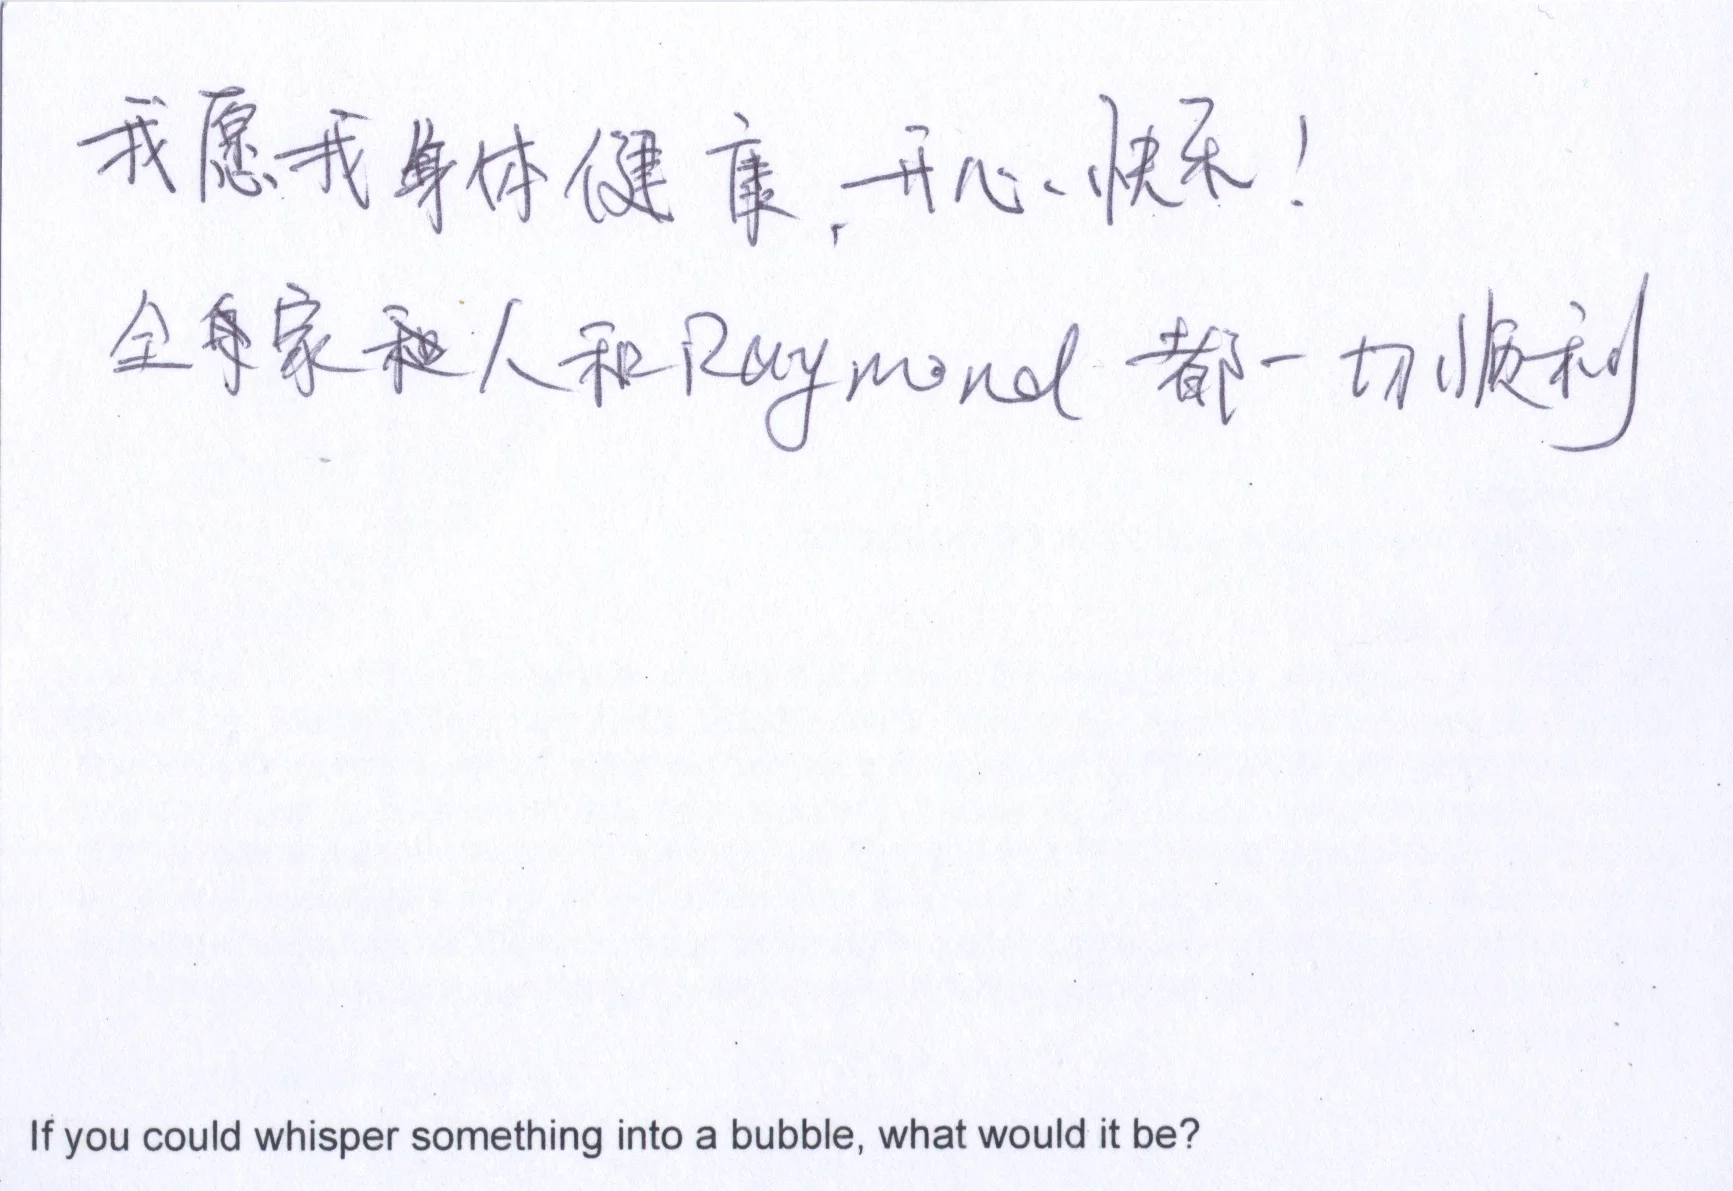 我愿我身体健康，开心、快乐！
全家人和Raymond 都一切顺利
If you could whisper something into a bubble, what would it be?